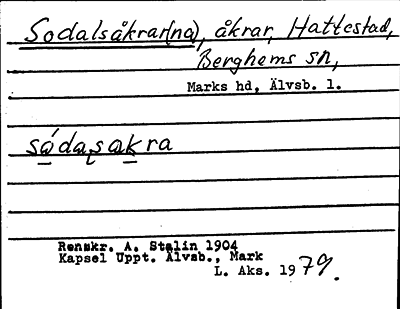 Sodalsåkrar(na), åkrar, Hattestad,
Berghems sn,
Marks hd, Älvsb. l.
sådasakra
Renskr. A. Stalin 1904
Kapsel Uppt. Älvsb., Mark
L. Aks. 1979.